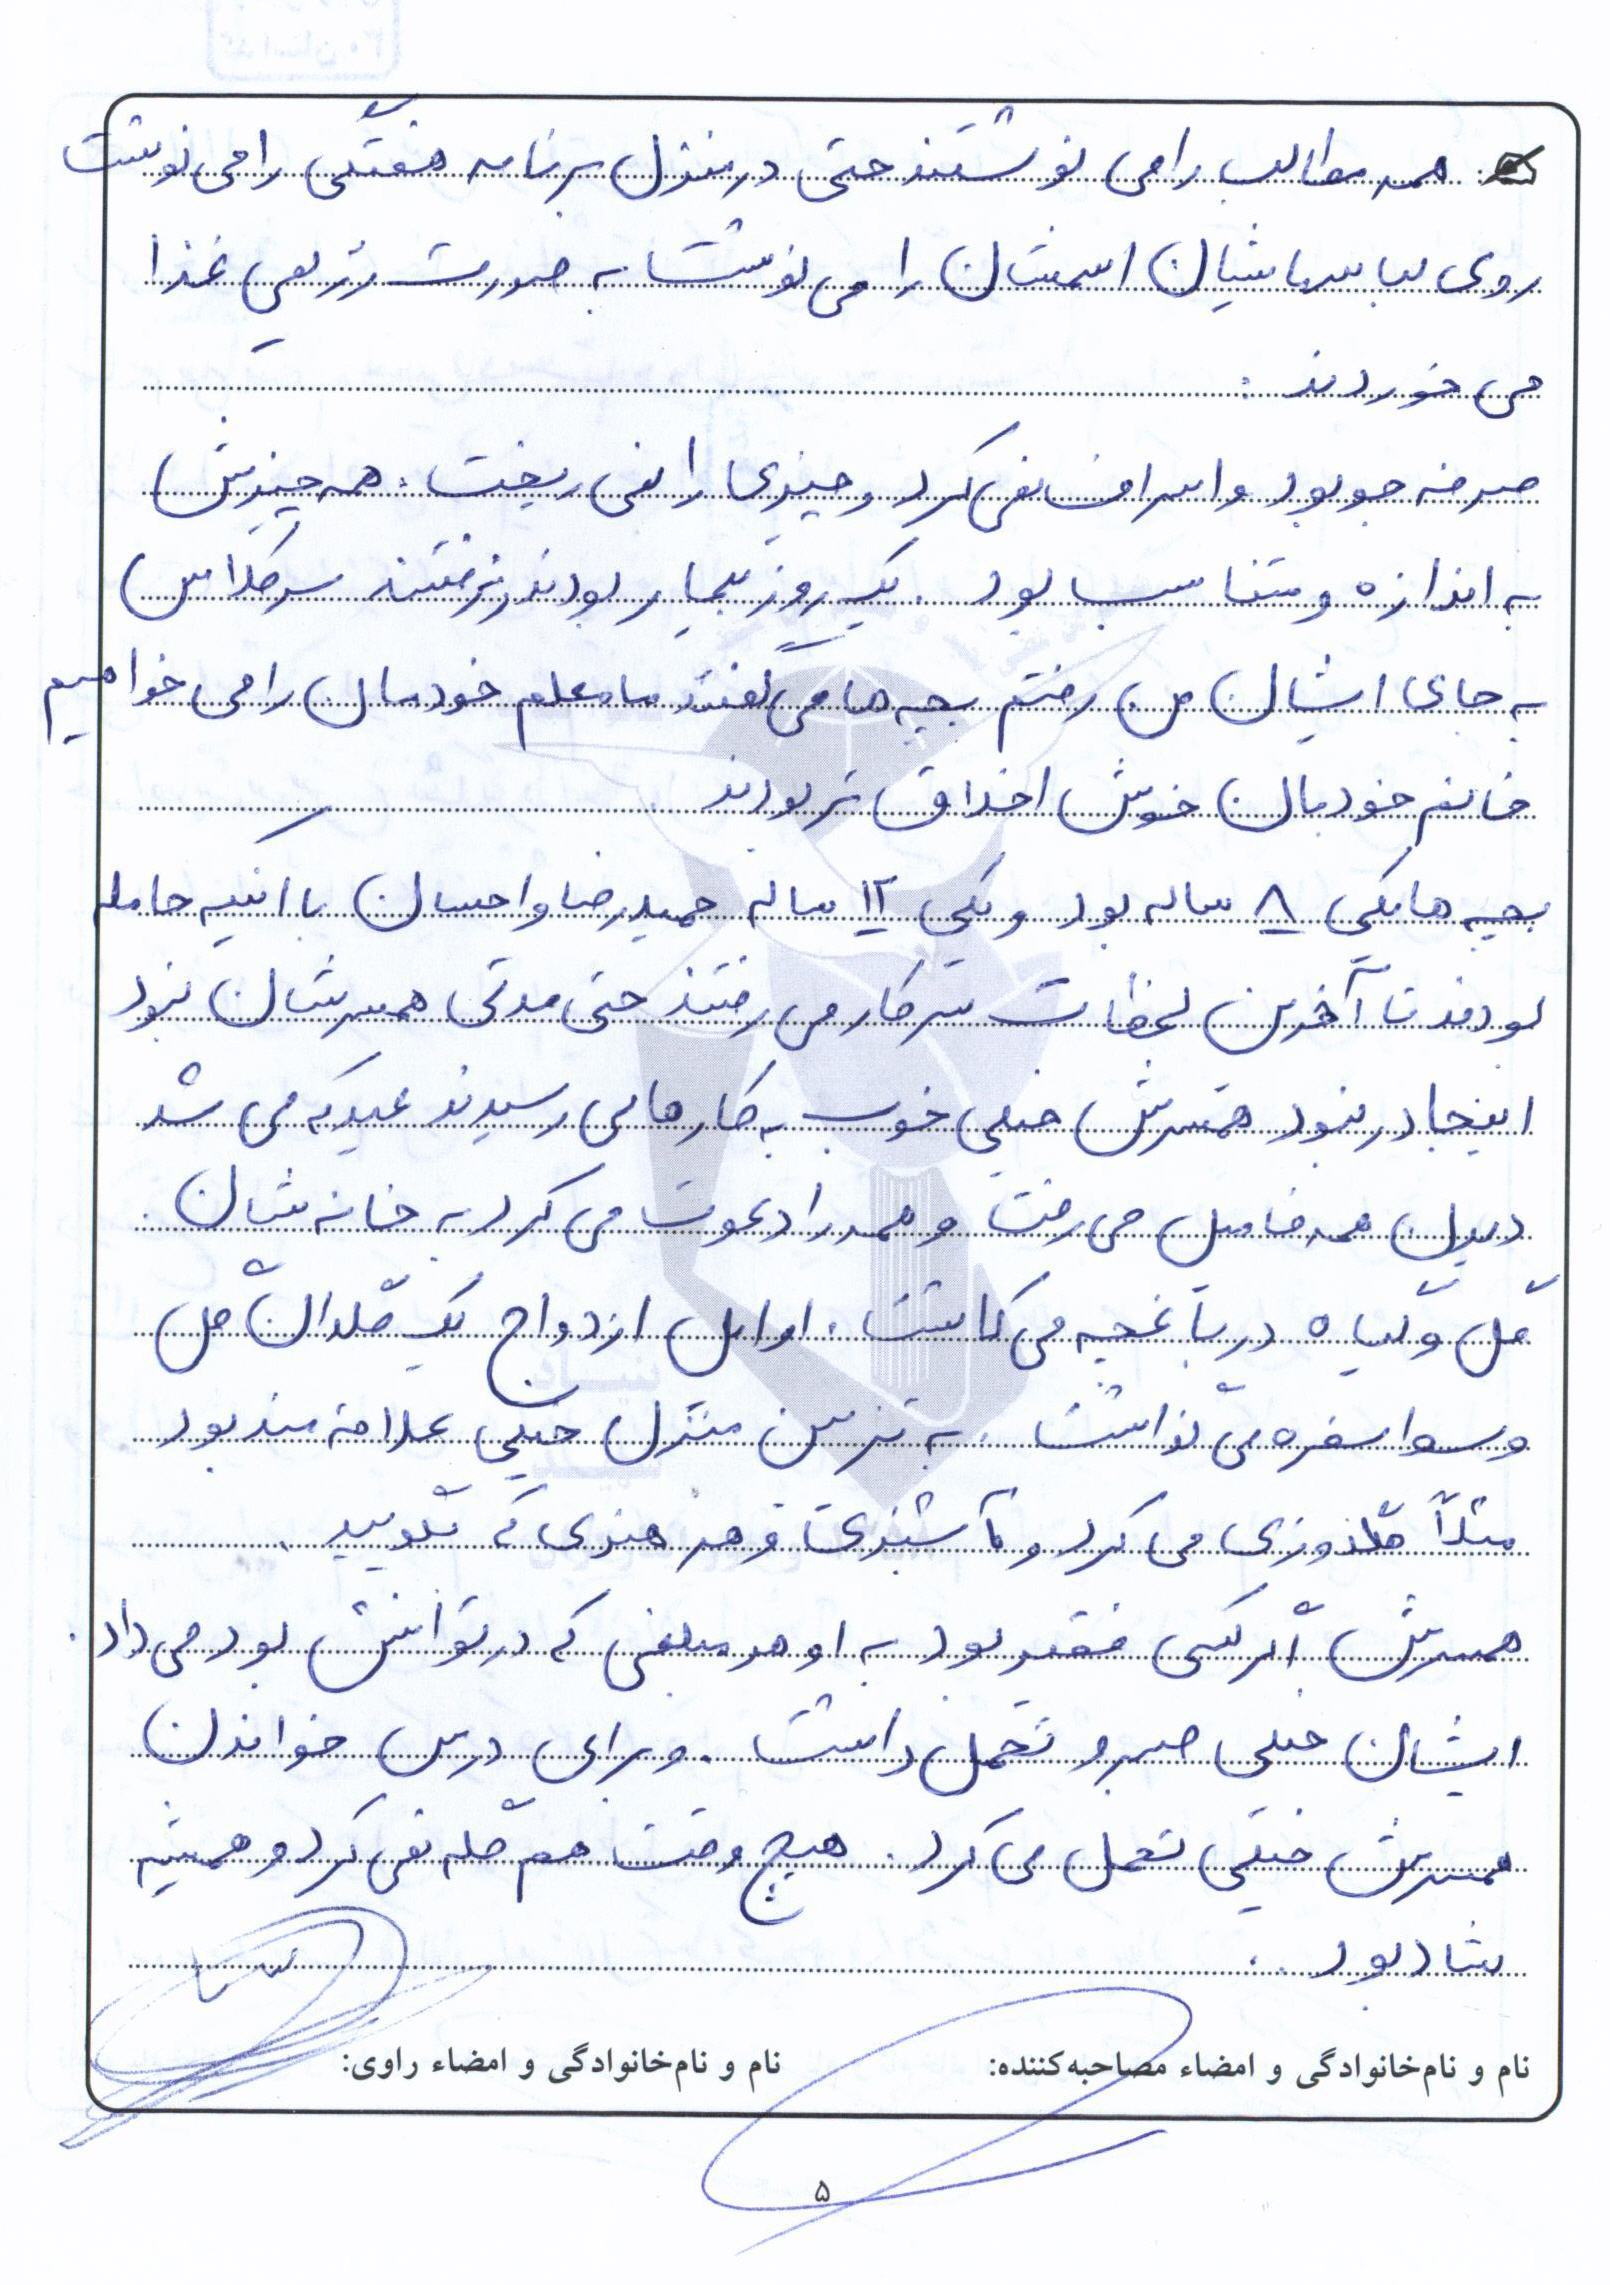 همه مطالب را می نوشتند حتی در منزل برنامه هفتگی را می نوشت
روی لباسهاشان اسمشان را می نوشت به صورت رژیمی غذا
می خوردند .
صرفه جو بود و اسراف نمی کرد و چیزی را نمی ریخت . همه چیزش
به اندازه و متناسب بود . یک روز بیمار بودند نرفتند سر کلاس
به جای ایشان من رفتم بچه ها می گفتند ما معلم خودمان را می خواهیم
خانم خودمان خوش اخلاق تر بودند
بچه ها یکی ۸ ساله بود و یکی ۱۲ ساله حمیدرضا و احسان با اینکه حامله
بودند تا آخرین لحظات سر کار می رفتند حتی مدتی همسرشان نبود
اینجا در نبود همسرش خیلی خوب به کارها می رسیدند عید که می شد
دیدن همه فامیل می رفت و همه را دعوت می کرد به خانه شان .
گل و گیاه در باغچه می کاشت . اوایل ازدواج یک گلدان گل
وسط سفره می گذاشت . به تزیین منزل خیلی علاقه مند بود
مثلاً گلدوزی می کرد و آشپزی و هر هنری که بگویید .
همسرش اگر کسی فقیر بود به او هر مبلغی که در توانش بود می داد .
ایشان خیلی صبر و تحمل داشت . و برای درس خواندن
همسرش خیلی تحمل می کرد . هیچ وقت هم گله نمی کرد و همیشه
شاد بود .
نام و نام‌خانوادگی و امضاء مصاحبه‌کننده: نام و نام‌خانوادگی و امضاء راوی:
۵